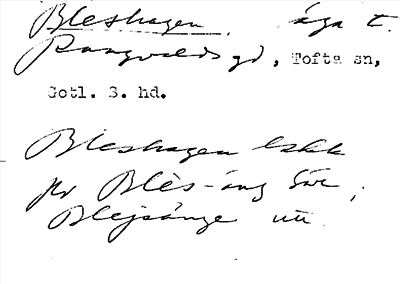 Bleshagen, äga t.
Rangvalds gd, Tofta sn,
Gotl. S. hd.
Bleshagen
på Bles-äng
Blejsänge